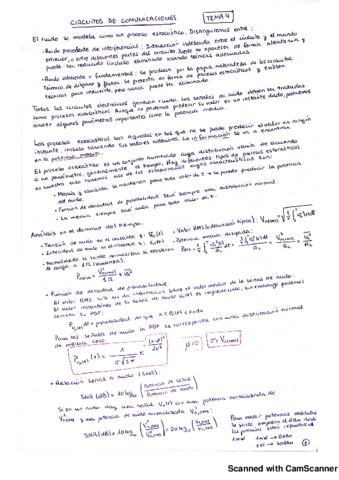 CIRCUITOS DE COMUNICACIONES TEMA 4
El ruido se modela como un proceso estocástico. Distinguiremos entre:
- Ruido procedente de interferencias: Interacción indeseada entre el circuito y el mundo
exterior, o entre diferentes partes del circuito. Puede no aparecer de forma aleatoria y
puede ser reducido incluso eliminado usando técnicas adecuadas.
- Ruido inherente o fundamental: Se produce por la propia naturaleza de los circuitos.
Térmico, de disparo y flicker. Se presenta en forma de proceso estocástico y existen
técnicas para reducirlo, pero nunca puede ser eliminado.
Todos los circuitos electrónicos generan ruido. Las señales de ruido deben ser tratadas
como procesos estocásticos. Aunque no podemos predecir su valor en un instante dado, podemos
conocer algunos parámetros importantes como la potencia media.
Los procesos estocásticos son aquellos en los que no se puede predecir el valor en ningún
instante incluso sabiendo sus valores anteriores. La información se va a encontrar
en la potencia media.
El proceso estocástico es un conjunto cuya distribución varía de acuerdo
a un parámetro, generalmente el tiempo. Hay diferentes tipos de procesos estocásticos
en nuestro caso haremos uso de los estacionarios cuyas características son:
- Media y varianza se mantienen para todo valor de t → se puede predecir la potencia
del ruido.
- Función de densidad de probabilidad será siempre una distribución normal.
- La media siempre será nula para todo valor de t.
Análisis en el dominio del tiempo.
- Tensión de ruido en el instante t: Vn(t) - Valor RMS
- Intensidad de ruido en el instante t: in(t) - Potencia media disipada:
- Normalmente la suele normalizar la resistencia
de carga a 1Ω
- Función de densidad de probabilidad.
El valor RMS solo nos da información sobre el valor medio de la señal de ruido.
El valor instantáneo de la señal de ruido X(t) es impredecible, sin embargo podemos
conocer su PDF:
Para las señales de ruido la PDF se corresponde con una distribución normal
de media cero.
μ=0
- Relación señal a ruido (SNR):
SNR (dB) = 10 log10 (Potencia de señal / Potencia de ruido)
Si en un nodo hay una señal Vx(t) con una potencia normalizada de
y una potencia de ruido normalizada
Para medir potencias absolutas
se suele emplear el dBm donde
1mW → 0dBm
1W → 30dBm
1
Scanned with CamScanner